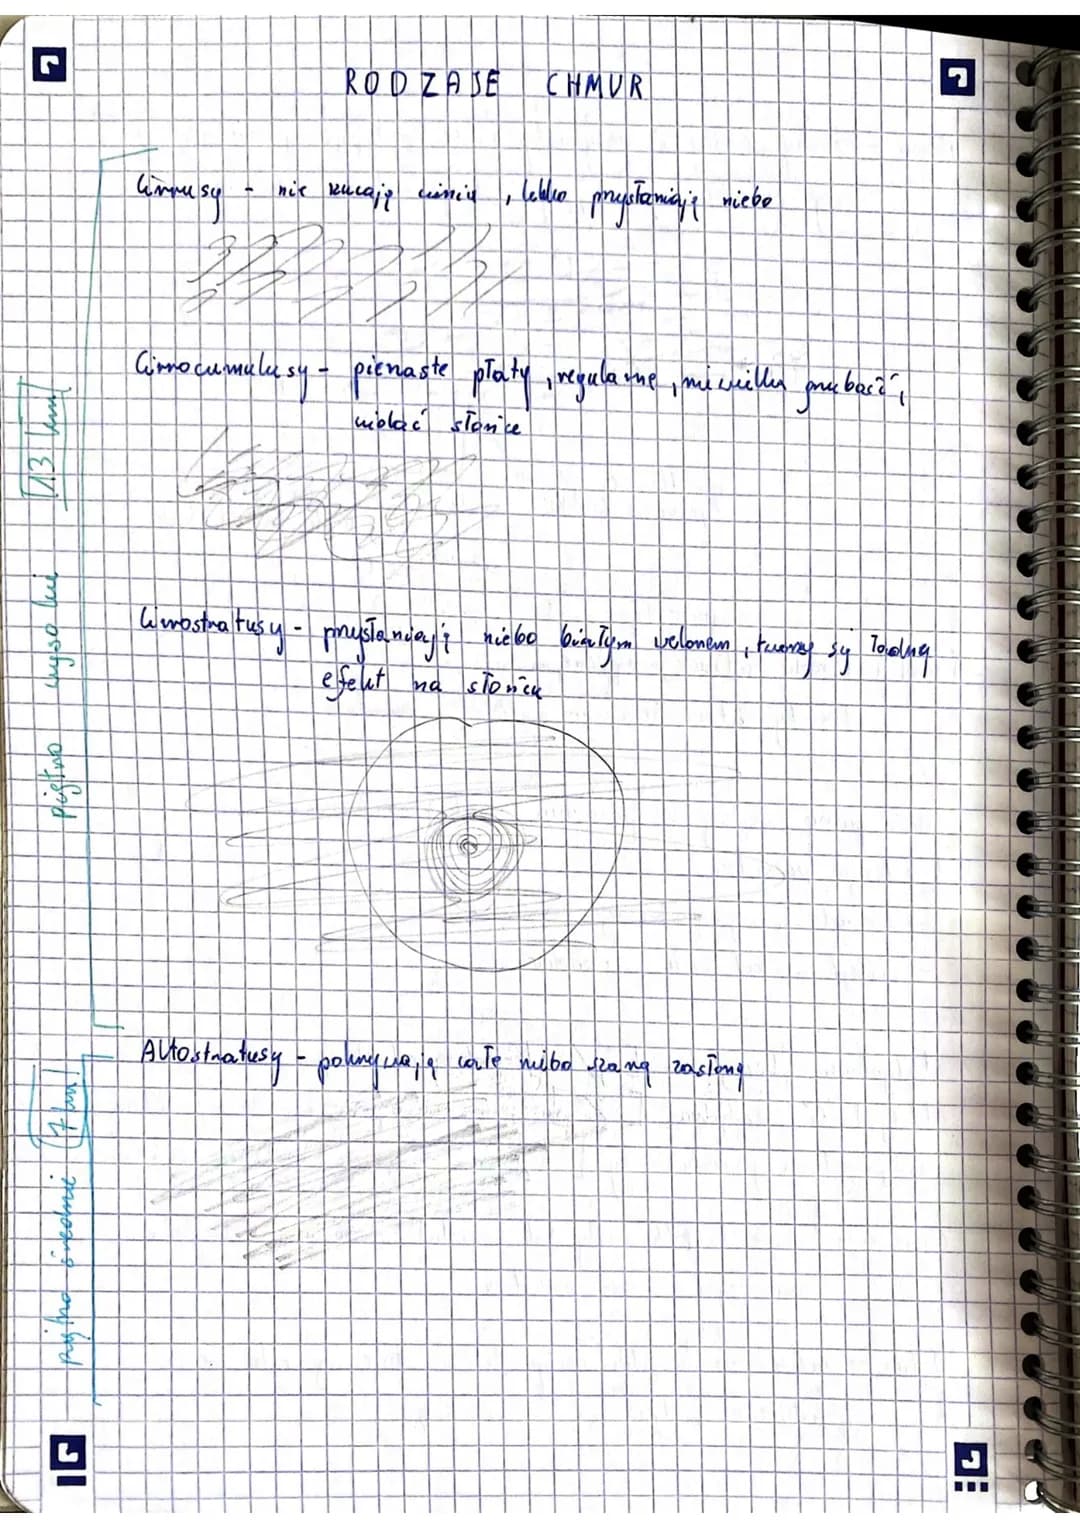 RODZAJE CHMUR
Cirrusy - nie rzucają cienia, lekko przysłaniają niebo
Cirrocumulusy - pierzaste płaty, regularne, niewielka grubość,
widać słońce
Cirrostratusy - przysłaniają niebo białym welonem, tworzy się ładny
efekt na słońcu
piętro wysokie 13 km
Altostratusy - pokrywają całe niebo szarą zasłoną
piętro średnie 7 km